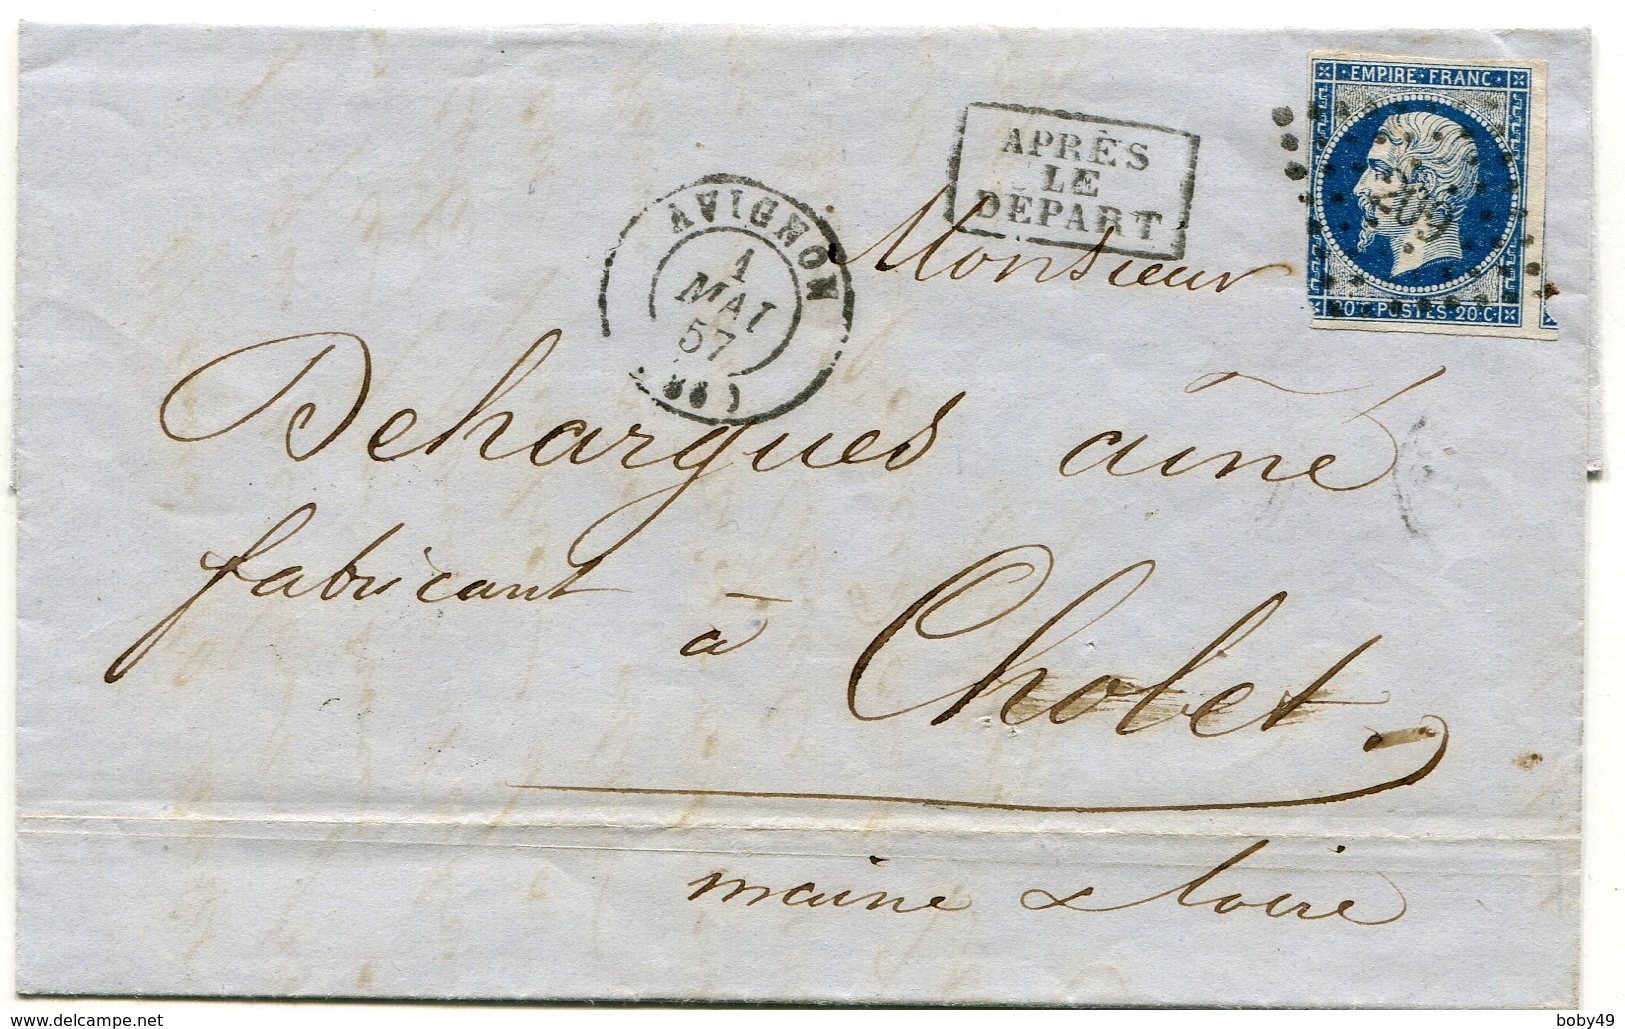 EMPIRE FRANC
209
20 C POSTES 20 C
APRÈS
LE
DÉPART
AVIGNON
1
MAI
57
Monsieur
Dehargues ainé
fabricant
à Cholet
maine & loire
www.delcampe.net
boby49